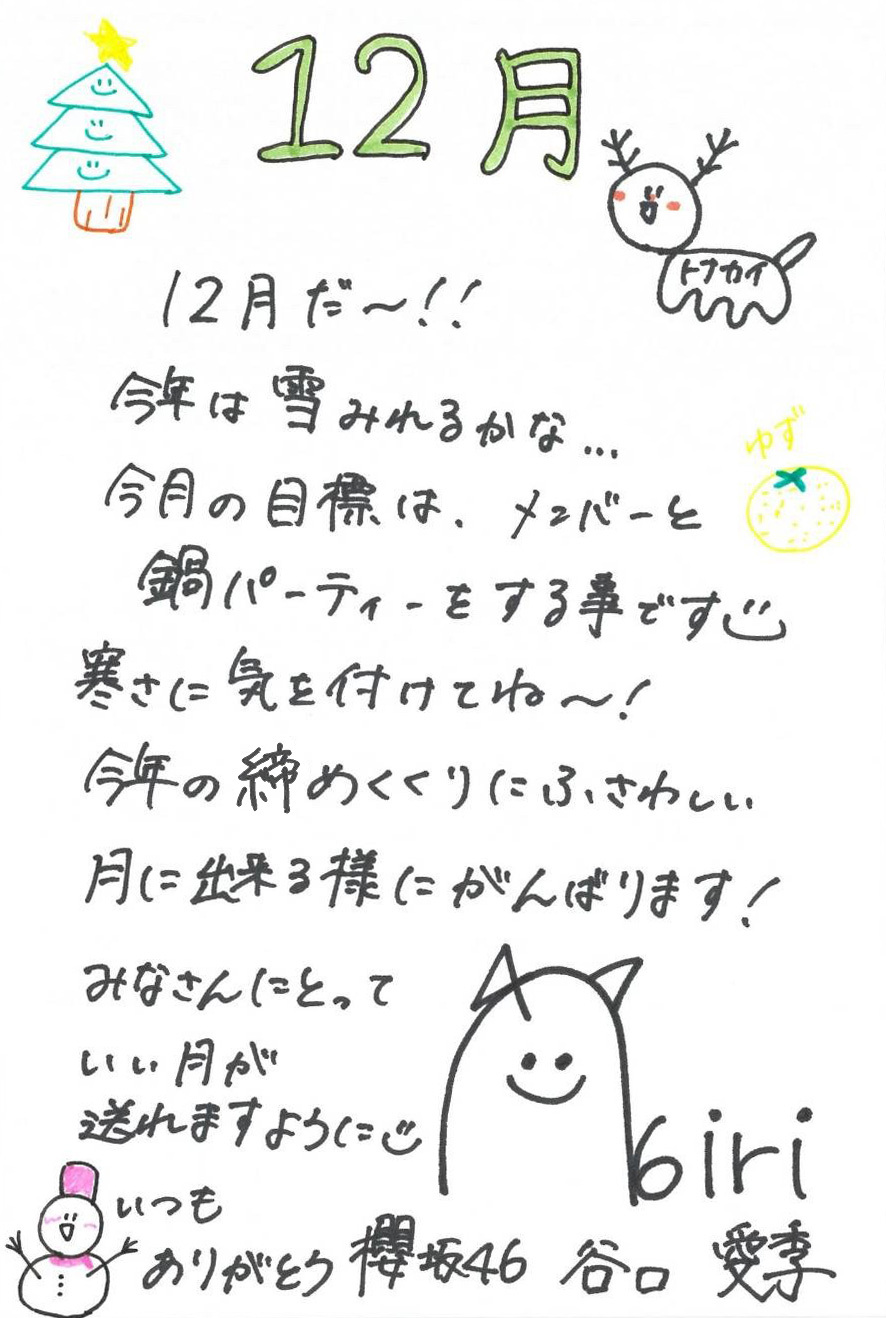 12月
トナカイ
12月だ〜!!
今年は雪みれるかな...
ゆず
今月の目標は、メンバーと
鍋パーティーをする事です
寒さに気を付けてね〜!
今年の締めくくりにふさわしい
月に出来る様にがんばります!
みなさんにとって
いい月が
送れますように
airi
いつも
ありがとう 櫻坂46 谷口 愛季